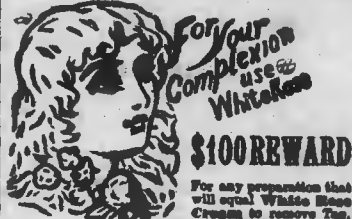 For Your
Complexion
use
White Rose
$100 REWARD
For any preparation that
will equal White Rose
Cream to remove Tan